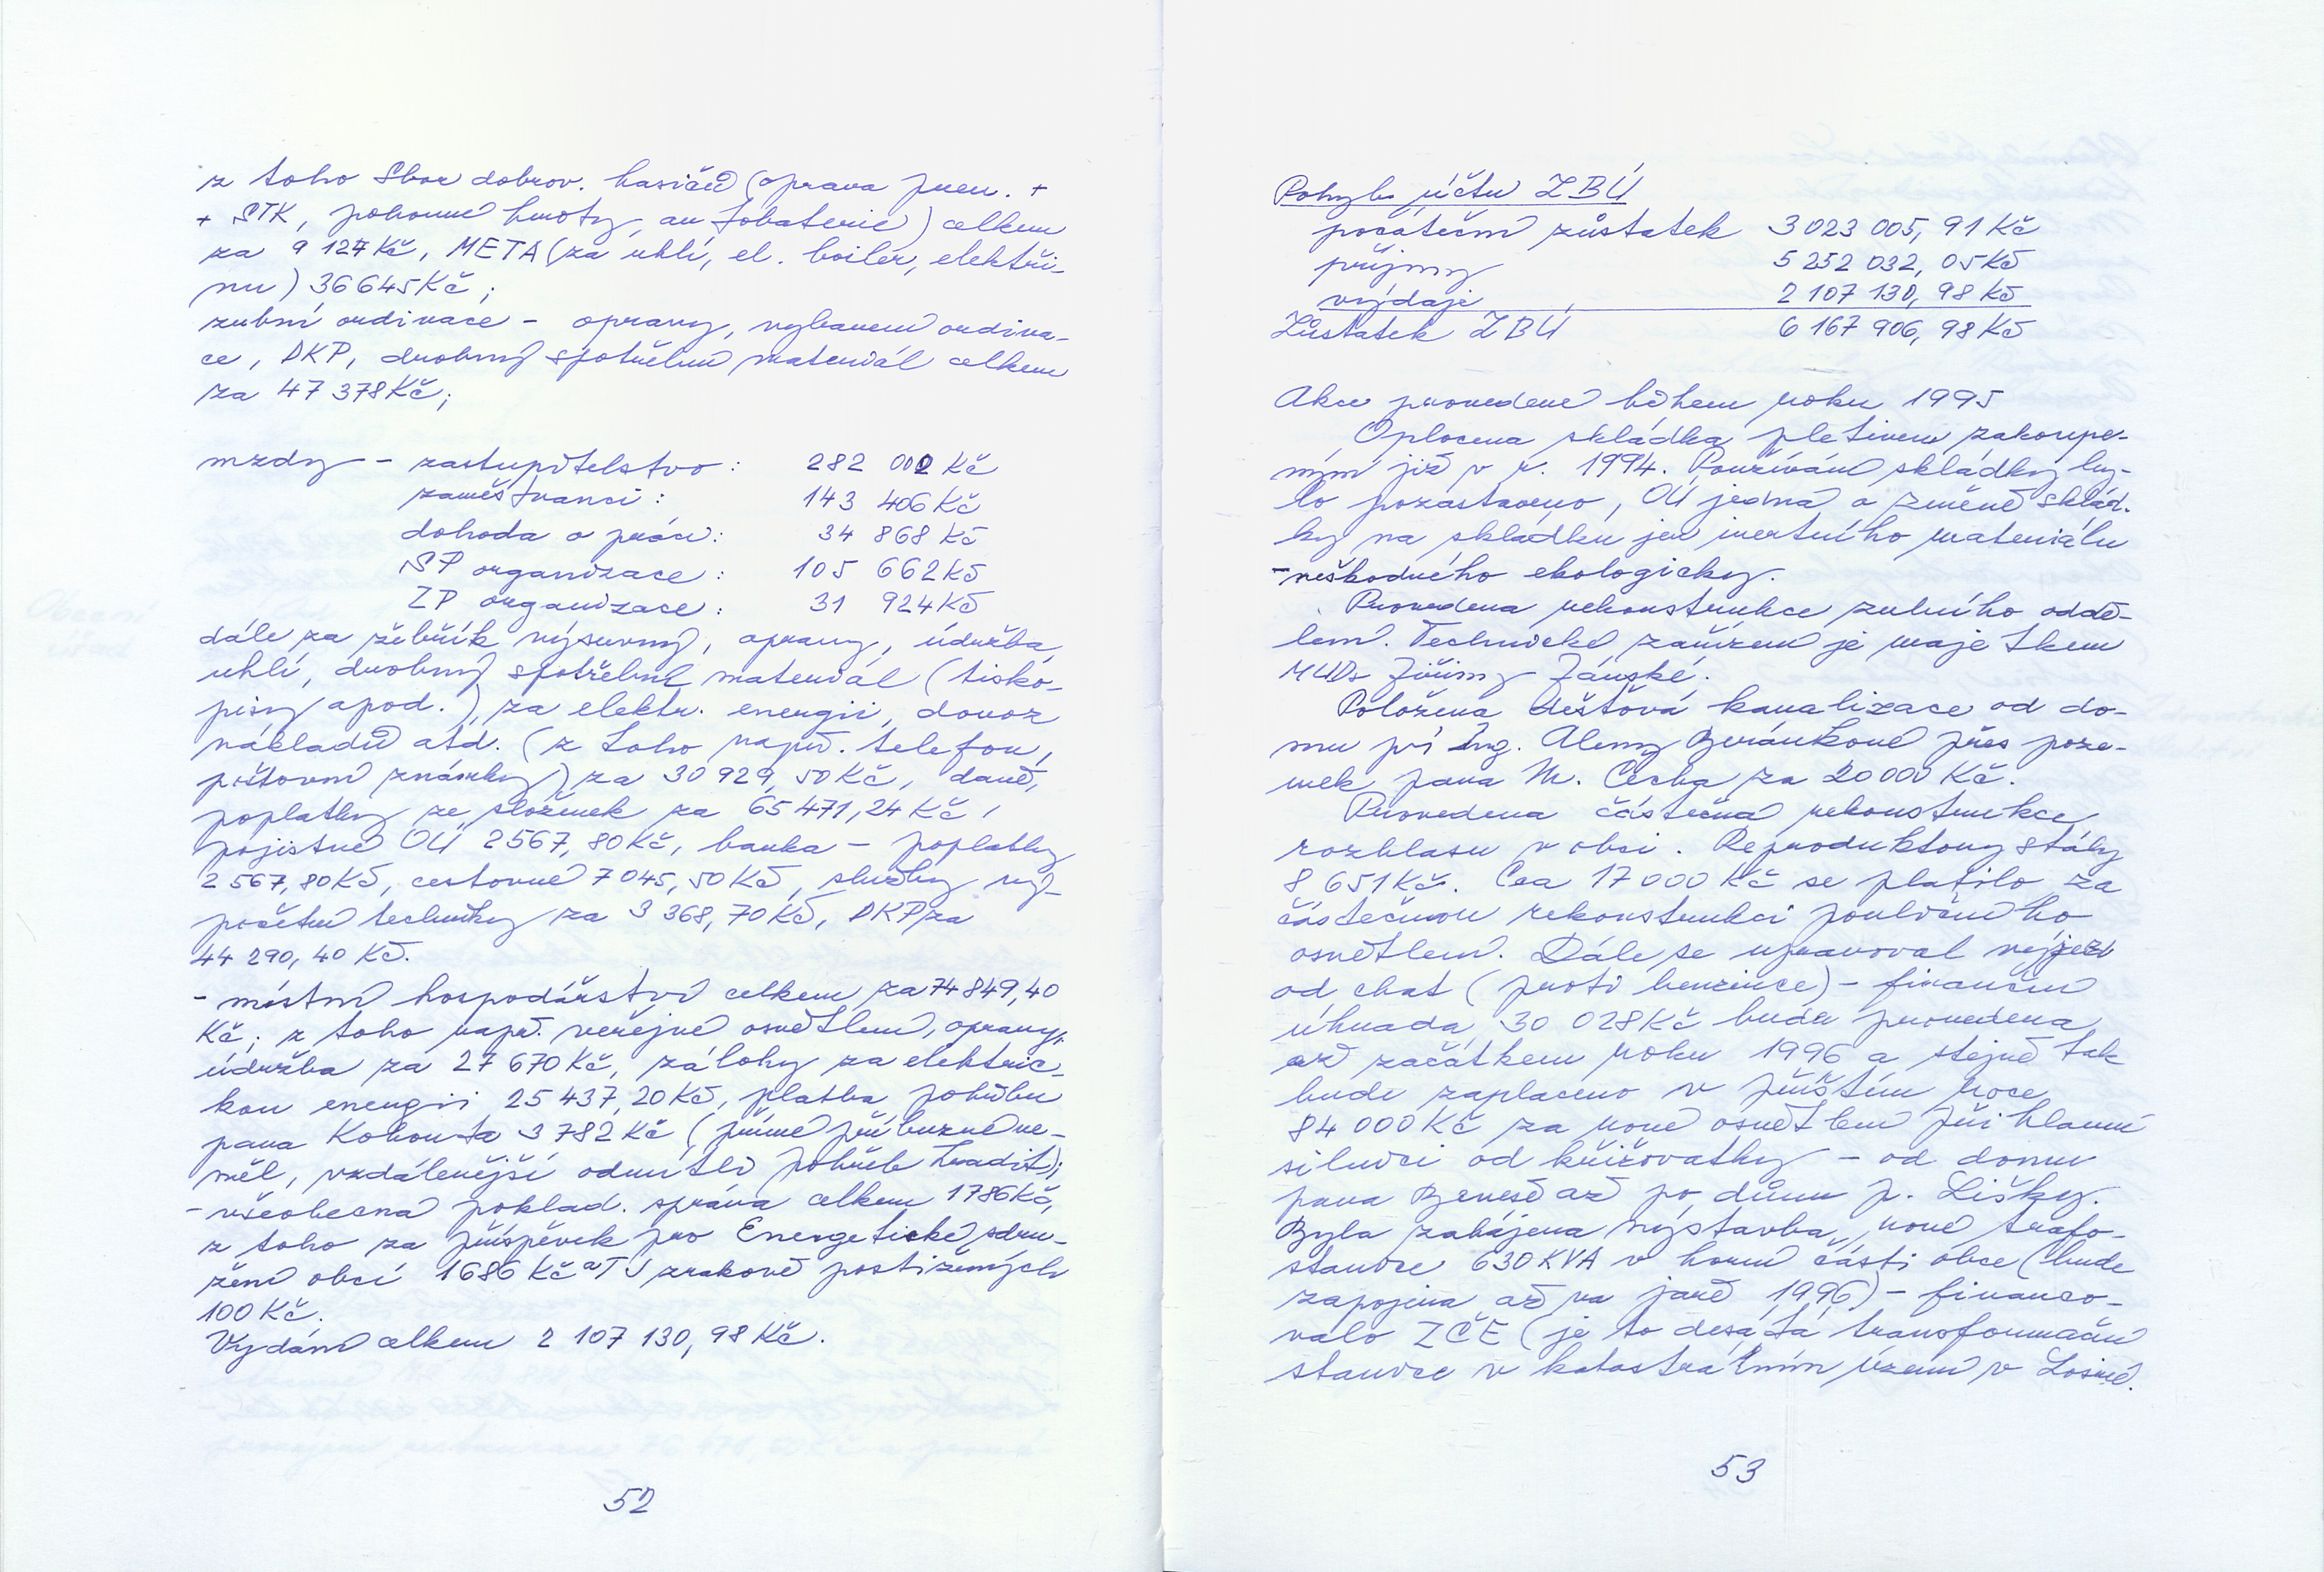 z toho Sbor dobrov. hasičů (oprava pneu. +
+ STK, pohonné hmoty, autobaterie) celkem
za 9 127 Kč, META (za uhlí, el. boiler, elektři-
nu) 36 645 Kč;
zubní ordinace - opravy, vybavení ordina-
ce, DKP, drobný spotřební materiál celkem
za 47 378 Kč;
mzdy - zastupitelstvo: 282 002 Kč
zaměstnanci: 143 406 Kč
dohoda o práci: 34 868 Kč
SP organizace: 105 662 Kč
ZP organizace: 31 924 Kč
dále za žebřík výsuvný, opravy, údržba,
uhlí, drobný spotřební materiál (tisko-
pisy apod.), za elektr. energii, dovoz
nákladů atd. (z toho např. telefon,
poštovní známky) za 30 929,50 Kč, daně,
poplatky ze složenek za 65 471,24 Kč,
pojistné OÚ 2 567,80 Kč, banka - poplatky
2 567,80 Kč, cestovné 7 045,50 Kč, služby vý-
početní techniky za 3 368,70 Kč, DKP za
44 290,40 Kč.
- místní hospodářství celkem za 74 849,40
Kč; z toho např. veřejné osvětlení, opravy,
údržba za 27 670 Kč, zálohy za elektric-
kou energii 25 437,20 Kč, platba pohřbu
pana Kohouta 3 782 Kč (přímé příbuzné ne-
měl, vzdálenější odmítli pohřeb hradit);
- všeobecná poklad. správa celkem 1786 Kč,
z toho za příspěvek pro Energetické sdru-
žení obcí 1686 Kč a TJ zrakově postižených
100 Kč.
Vydání celkem 2 107 130,98 Kč.
52
Pohyb účtu ZBÚ
počáteční zůstatek 3 023 005,91 Kč
příjmy 5 252 032,05 Kč
výdaje 2 107 130,98 Kč
Zůstatek ZBÚ 6 167 906,98 Kč
Akce provedené během roku 1995
Oplocena skládka pletivem zakoupe-
ným již v r. 1994. Používání skládky by-
lo pozastaveno, OÚ jedná o změně sklád-
ky na skládku jen inertního materiálu
- neškodného ekologicky.
Provedena rekonstrukce zubního oddě-
lení. Technické zařízení je majetkem
MUDr Jiřiny Zánské.
Položena dešťová kanalizace od do-
mu pí Ing. Aleny Beránkové přes poze-
mek pana M. Čecha za 20 000 Kč.
Provedena částečná rekonstrukce
rozhlasu v obci. Reproduktory stály
8 651 Kč. Cca 17 000 Kč se platilo za
částečnou rekonstrukci pouličního
osvětlení. Dále se upravoval výjezd
od chat (proti benzince) - finanční
úhrada 30 028 Kč bude provedena
až začátkem roku 1996 a stejně tak
bude zaplaceno v příštím roce
84 000 Kč za nové osvětlení při hlavní
silnici od křižovatky - od domu
pana Beneše až po dům p. Lišky.
Byla zahájena výstavba nové trafo-
stanice 630 KVA v horní části obce (bude
zapojena až na jaře 1996) - financo-
valo ZČE (je to desátá transformační
stanice v katastrálním území v Losiné.
53